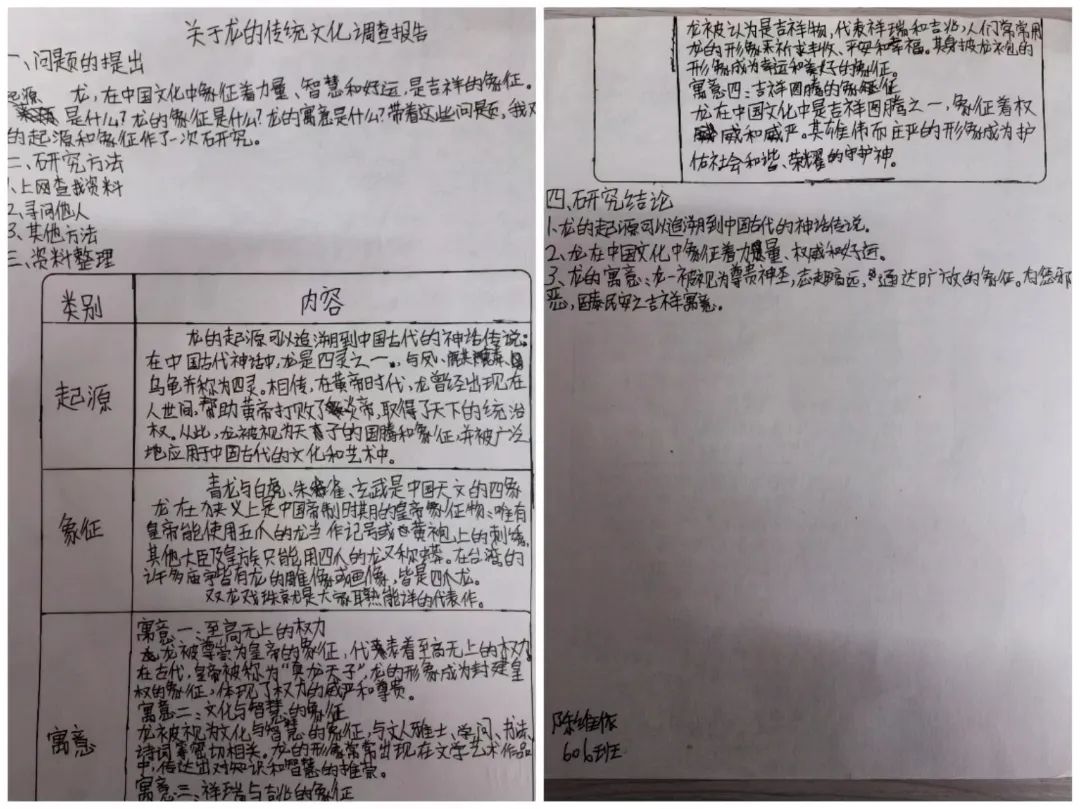 关于龙的传统文化调查报告
一、问题的提出
起源 龙,在中国文化中象征着力量、智慧和好运,是吉祥的象征。
是什么?龙的象征是什么?龙的寓意是什么?带着这些问题,我对
的起源和象征作了一次研究。
二、研究方法
1、上网查找资料
2、寻问他人
3、其他方法
三、资料整理
类别 内容
起源
龙的起源可以追溯到中国古代的神话传说:
在中国古代神话中,龙是四灵之一。与凤、
乌龟并称为四灵。相传,在黄帝时代,龙曾经出现在
人世间,帮助黄帝打败了炎帝,取得了天下的统治
权。从此,龙被视为天子的图腾和象征,并被广泛
地应用于中国古代的文化和艺术中。
象征
青龙与白虎、朱雀、玄武是中国天文的四象
龙在狭义上是中国帝制时期的皇帝象征物:唯有
皇帝能使用五爪的龙当作记号或黄袍上的刺绣,
其他大臣及皇族只能用四爪的龙又称蟒。在台湾的
许多庙宇皆有龙的雕像或画像,皆是四爪龙。
双龙戏珠就是大家耳熟能详的代表作。
寓意
寓意一:至高无上的权力
龙被尊崇为皇帝的象征,代表着至高无上的权力
在古代,皇帝被称为“真龙天子”,龙的形象成为封建皇
权的象征,体现了权力的威严和尊贵。
寓意二:文化与智慧的象征
龙被视为文化与智慧的象征,与文人雅士、学问、书法、
诗词等密切相关。龙的形象常常出现在文学艺术作品
中,传达出对知识和智慧的推崇。
寓意三:祥瑞与吉兆的象征
龙被认为是吉祥物,代表祥瑞和吉兆,人们常常用
龙的形象来祈求丰收、平安和幸福。其身披龙袍的
形象成为幸运和美好的象征。
寓意四:吉祥图腾的象征
龙在中国文化中是吉祥图腾之一,象征着权
威和威严。其雄伟而庄严的形象成为护
佑社会和谐、荣耀的守护神。
四、研究结论
1、龙的起源可以追溯到中国古代的神话传说。
2、龙在中国文化中象征着力量、权威和好运。
3、龙的寓意:龙一被视为尊贵神圣,志趣高远,通达旷放的象征。为惩邪
恶,国泰民安之吉祥寓意。
陈维依
606班